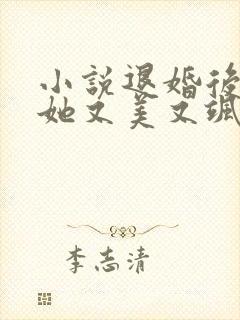 小說退婚後
她又美又颯
李志清